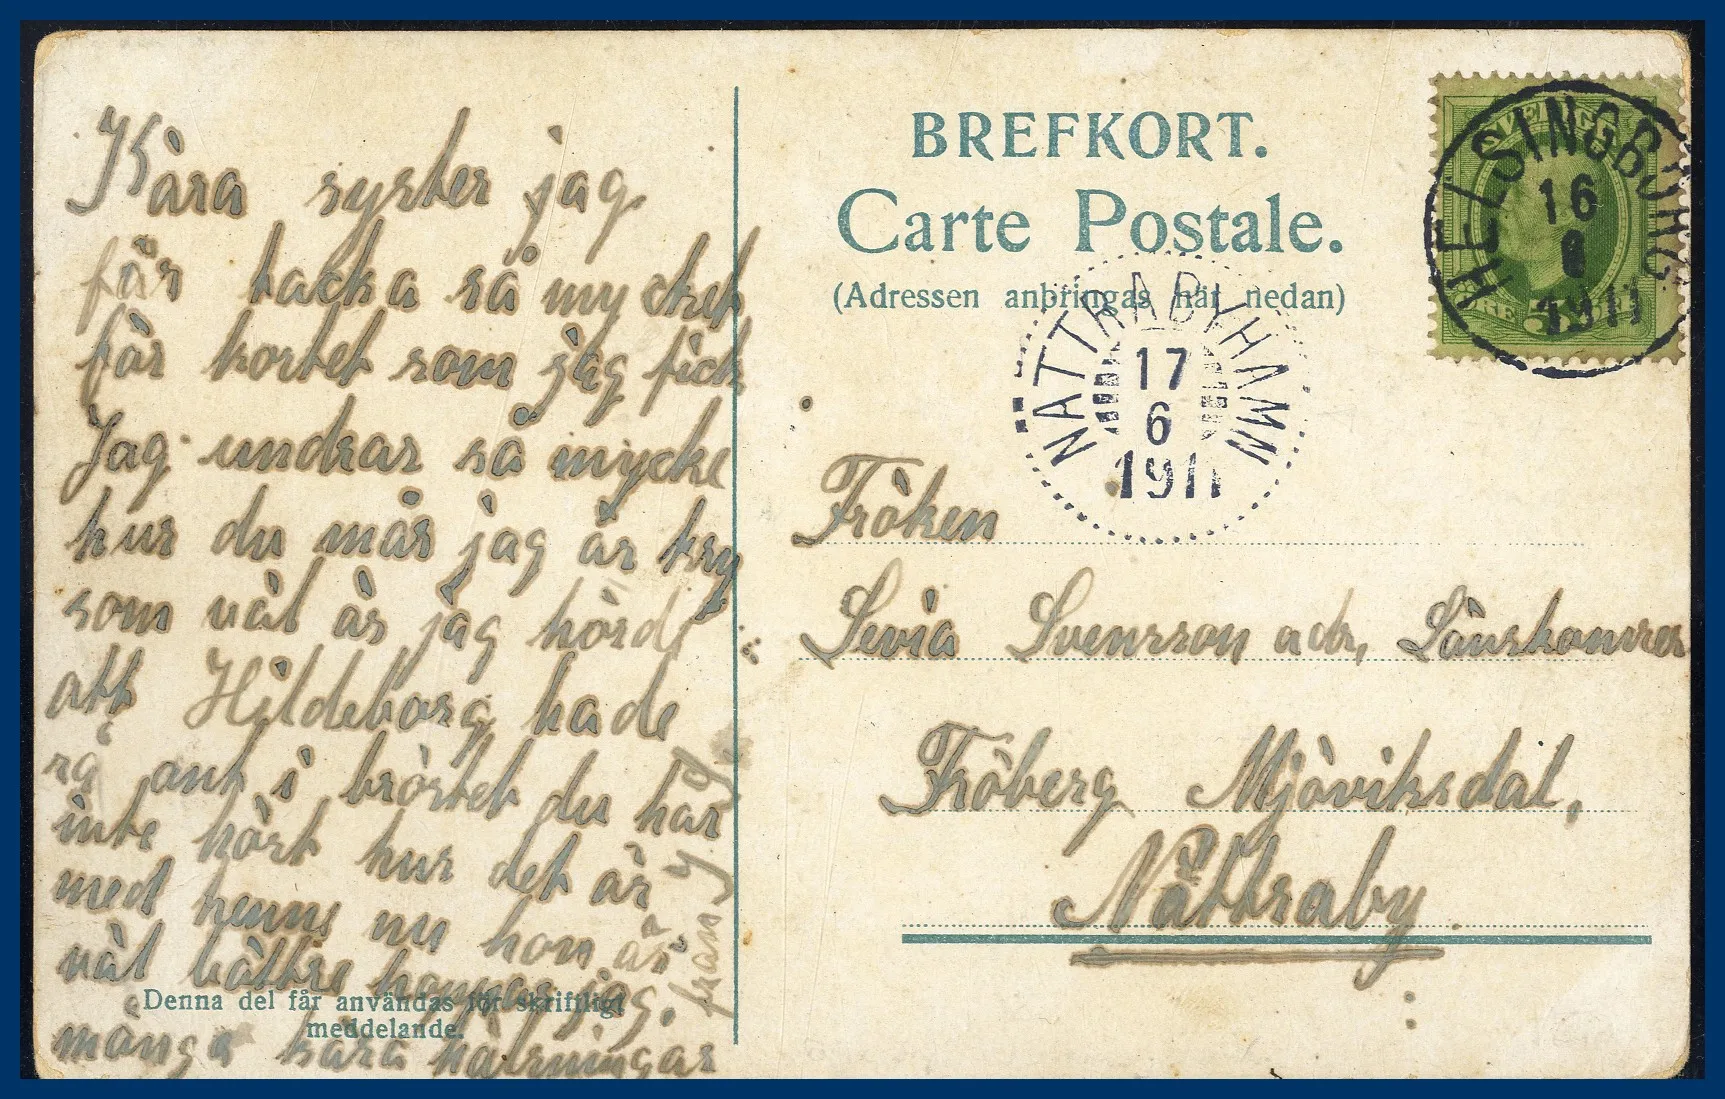 Kära syster jag
får tacka så mycket
får kortet som jag fick
Jag undrar så mycke
hur du mår jag är kry
som väl är jag hörde
att Hildeborg hade
så ont i bröstet du har
inte hört hur det är
med henne nu hon är
väl bättre hoppas jag.
många kära hälsningar
från
Denna del får användas för skriftligt
meddelande.
BREFKORT.
Carte Postale.
(Adressen anbringas här nedan)
SVERIGE
HELSINGBORG
16
6
1911
NÄTTRABYHAMN
17
6
1911
Fröken
Sevia Svensson adr, Länskonires
Fröberg Mjöviksdal,
Nättraby